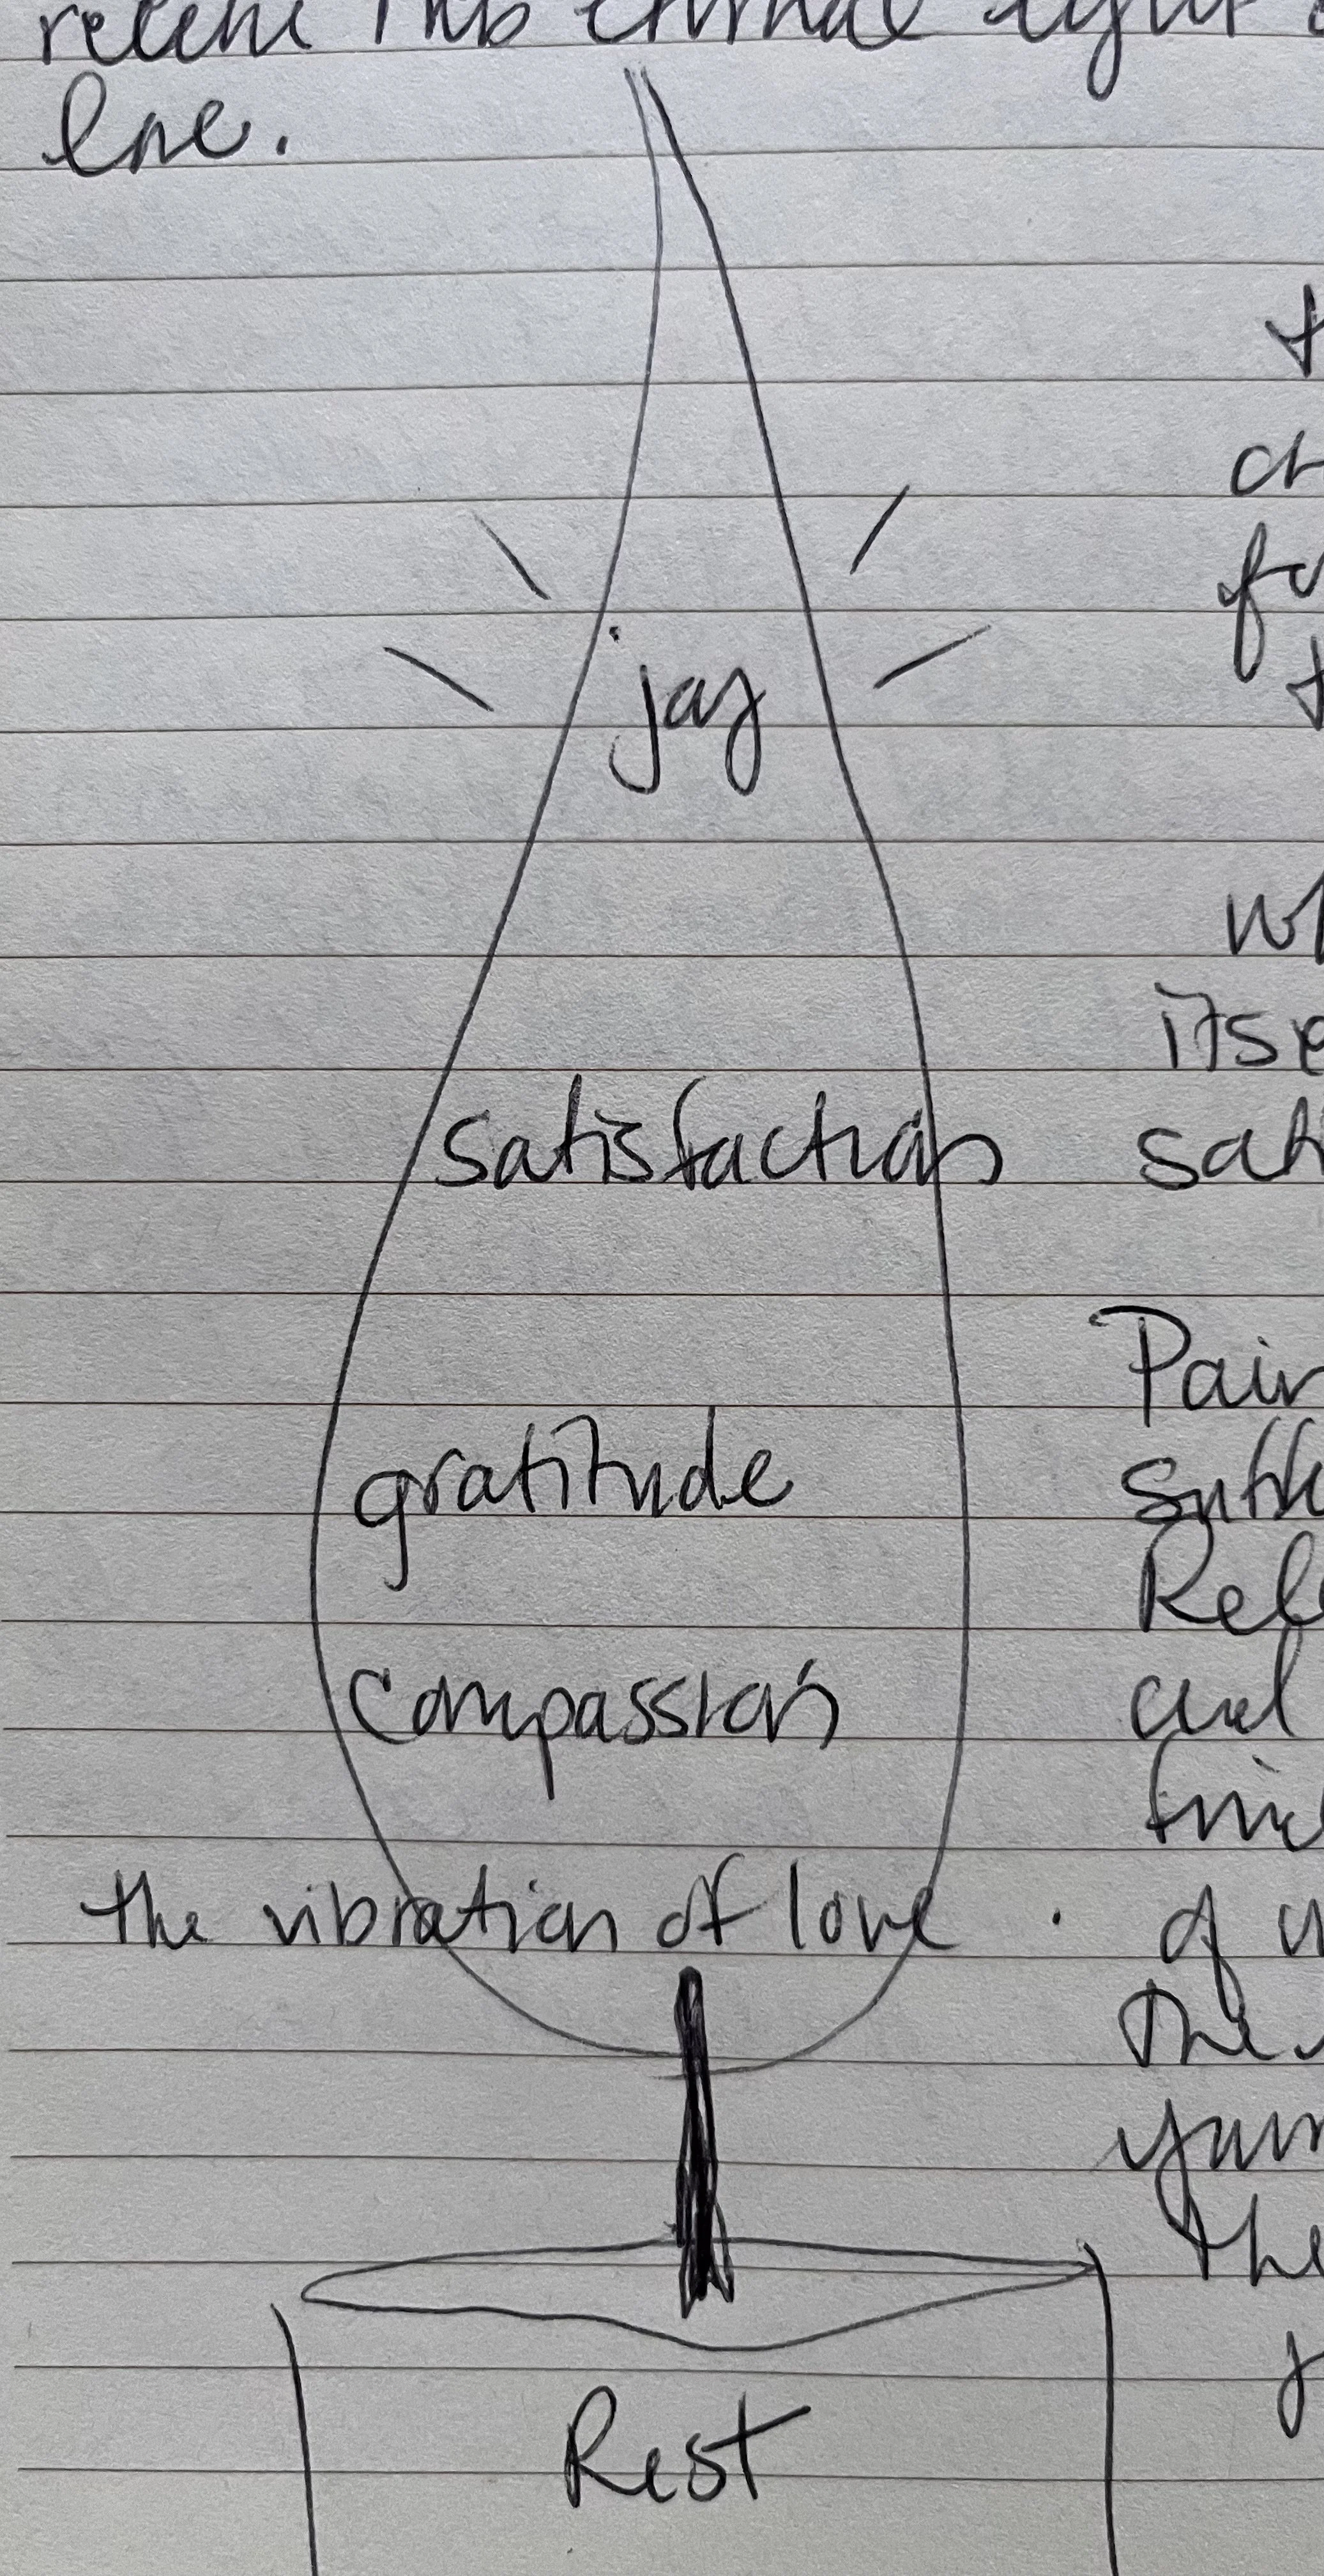 receive this eternal light
love.
joy
satisfaction
gratitude
compassion
the vibration of love
Rest
itse
sati
Pain
Rel
and
find
of
The
the